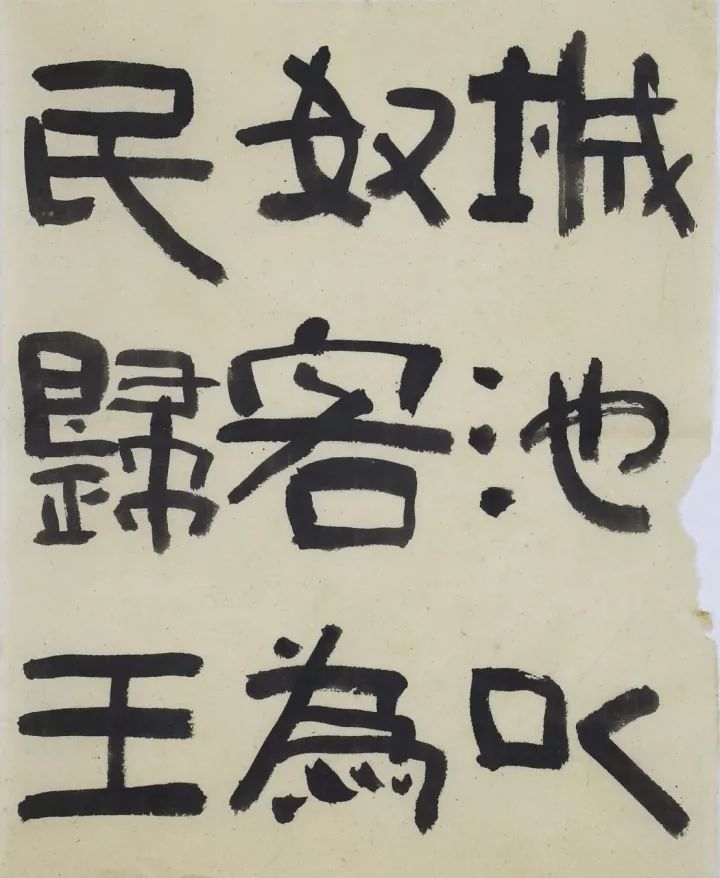 城池以
奴客為
民歸王